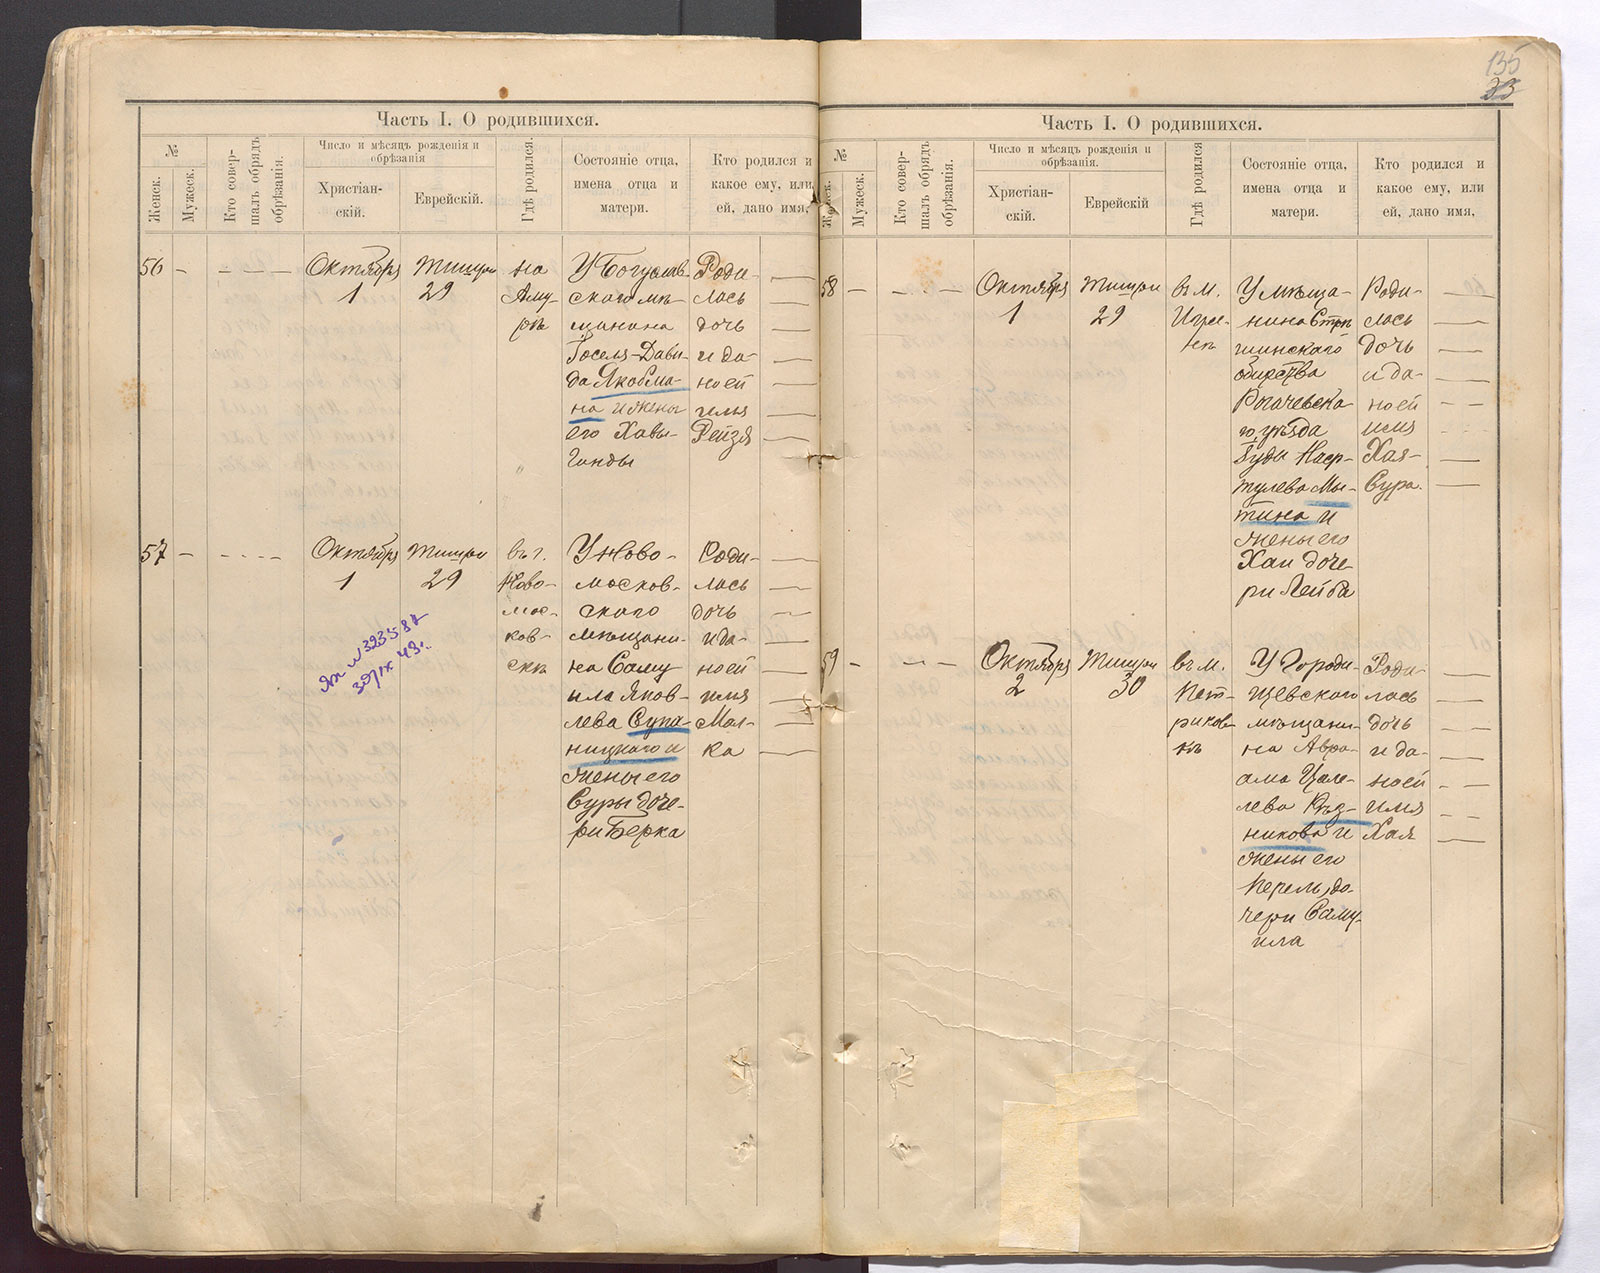 135
33
Часть I. О родившихся.
№
Женск.
Мужеск.
Кто совер-
шалъ обрядъ
обрѣзанія.
Число и мѣсяцъ рожденія и
обрѣзанія
Христіан-
скій.
Еврейскій.
Гдѣ родился.
Состояніе отца,
имена отца и
матери.
Кто родился и
какое ему, или
ей, дано имя,
56
Октября
1
Тишри
29
на
Аму-
рѣ
У Богуслав-
скаго мѣ-
щанина
Іоселя-Дави-
да Якобма-
на и жены
его Хавы-
Гинды
Роди-
лась
дочь
и да-
ной
имя
Рейзя
57
Октября
1
Тишри
29
въ г.
Ново-
мос-
ков-
скѣ
У Ново-
москов-
скаго
мѣщани-
на Саму
ила Яков-
лева Супо-
ницкаго и
жены его
Суры доче-
ри Берка
Роди-
лась
дочь
и да-
ной
имя
Мал-
ка
Часть I. О родившихся.
№
Женск.
Мужеск.
Кто совер-
шалъ обрядъ
обрѣзанія.
Число и мѣсяцъ рожденія и
обрѣзанія.
Христіан-
скій.
Еврейскій
Гдѣ родился
Состояніе отца,
имена отца и
матери.
Кто родился и
какое ему, или
ей, дано имя,
58
Октября
1
Тишри
29
въ м.
Игре-
нѣ
У мѣща-
нина Стрѣ
шинскаго
общества
Рогачевска-
го, уѣзда
Іуды
Мы-
тина и
жены его
Хаи доче-
ри Лейба
Роди-
лась
дочь
и да-
ной
имя
Хая-
Сура.
59
Октября
2
Тишри
30
въ м.
Пет-
риков-
кѣ
У Городи-
щевскаго
мѣщани-
на Авра-
ама Цале-
лева Рѣз-
никова и
жены его
Перель, до-
чери Саму-
ила
Роди-
лась
дочь
и да-
ной
имя
Хая